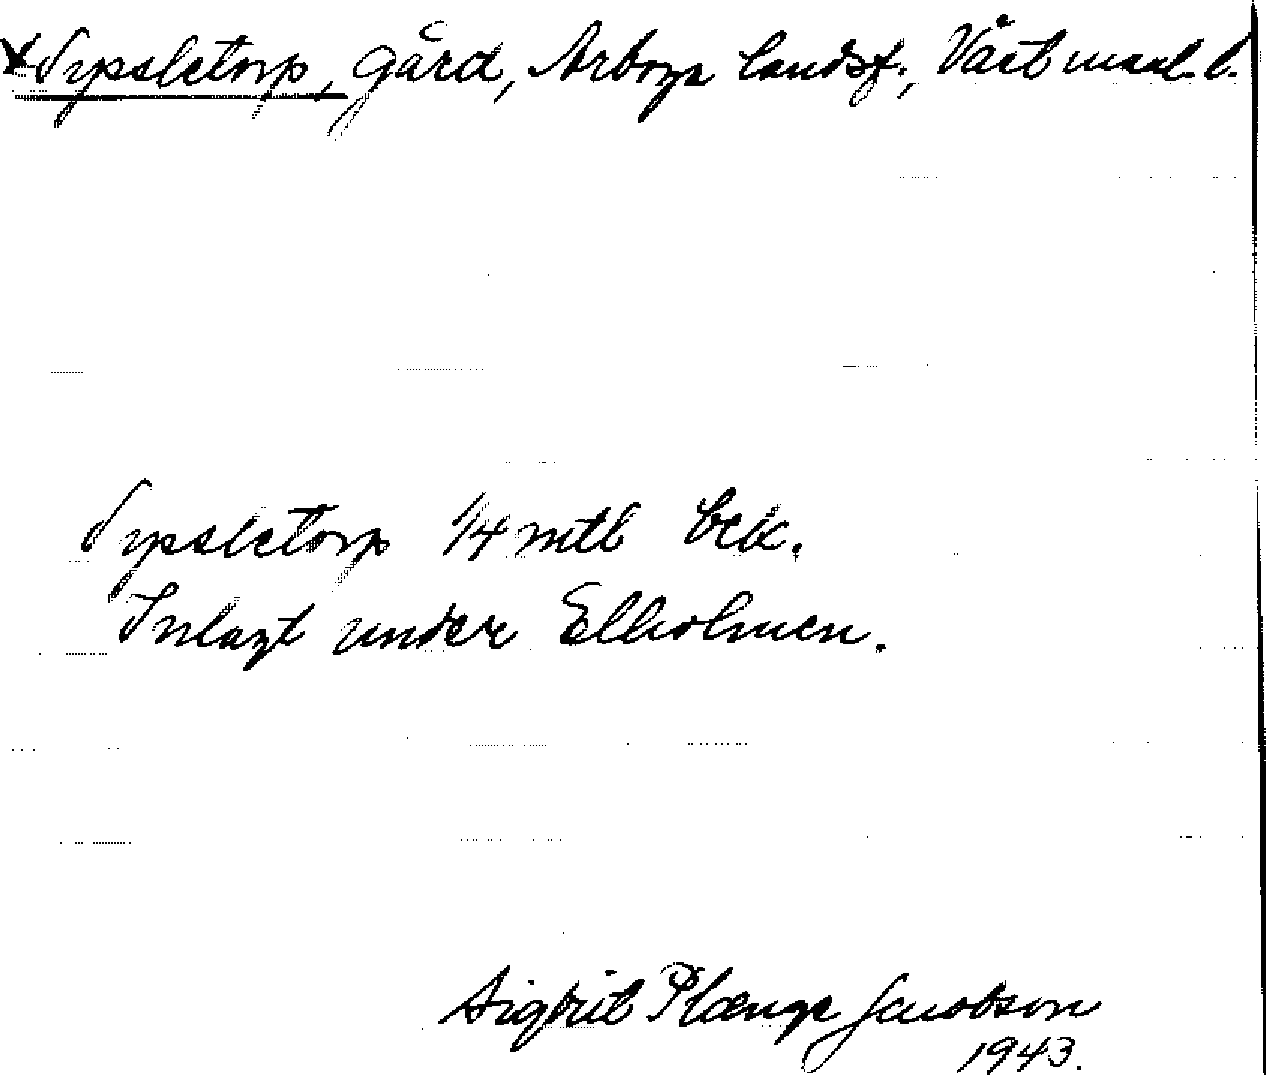 Sypsletorp, gård, Arboga landsf., Västmanl. l.
Sypsletorp 1/4 mtl
Inlagt under Ellholmen.
Sigfrid Plænge Jacobson
1943.